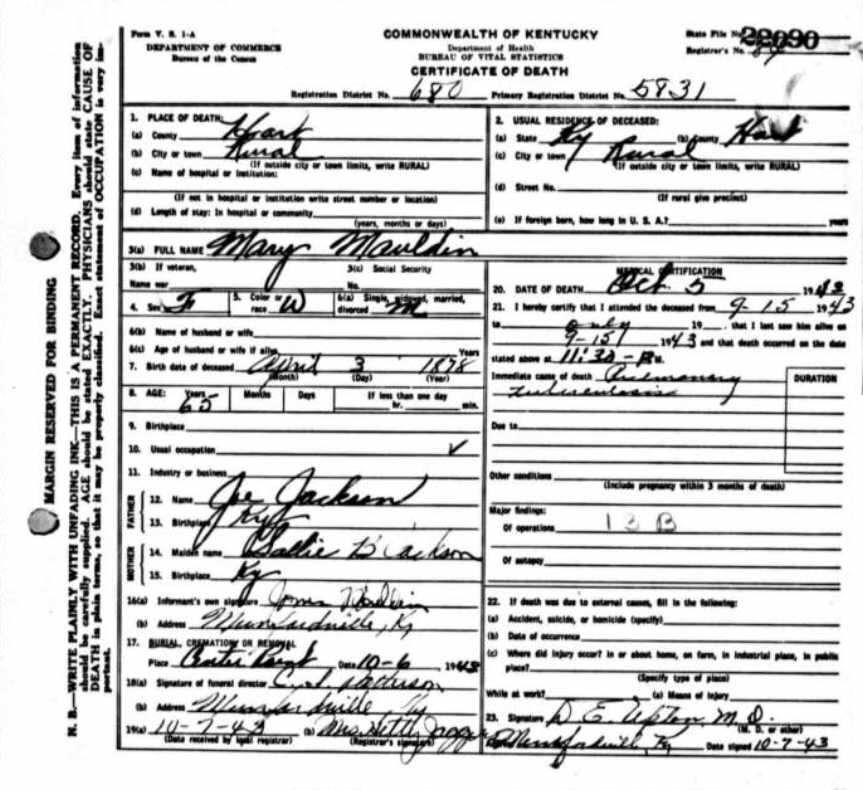 Form V. S. 1-A
DEPARTMENT OF COMMERCE
Bureau of the Census
COMMONWEALTH OF KENTUCKY
Department of Health
BUREAU OF VITAL STATISTICS
CERTIFICATE OF DEATH
State File No. 22090
Registrar's No.
Registration District No. 680 Primary Registration District No. 5831
1. PLACE OF DEATH:
(a) County Hart
(b) City or town Rural
(If outside city or town limits, write RURAL)
(c) Name of hospital or institution:
(If not in hospital or institution write street number or location)
(d) Length of stay: In hospital or community
(years, months or days)
2. USUAL RESIDENCE OF DECEASED:
(a) State Ky (b) County Hart
(c) City or town Rural
(If outside city or town limits, write RURAL)
(d) Street No.
(If rural give precinct)
(e) If foreign born, how long in U. S. A.? years
3(a) FULL NAME Mary Mauldin
3(b) If veteran,
Name war
3(c) Social Security
No.
4. Sex F 5. Color or race W 6(a) Single, widowed, married, divorced M
6(b) Name of husband or wife
6(c) Age of husband or wife if alive Years
7. Birth date of deceased April 3 1878
(Month) (Day) (Year)
8. AGE: Years Months Days If less than one day
65 hr. min.
9. Birthplace
10. Usual occupation ✓
11. Industry or business
FATHER
12. Name Joe Jackson
13. Birthplace Ky
MOTHER
14. Maiden name Sallie
15. Birthplace Ky
16(a) Informant's own signature
(b) Address Munfordville, Ky
17. BURIAL, CREMATION OR REMOVAL
Place Center Point Date 10-6 1943
18(a) Signature of funeral director
(b) Address Munfordville Ky
19(a) 10-7-43 (b) Mrs.
(Date received by local registrar) (Registrar's signature)
MEDICAL CERTIFICATION
20. DATE OF DEATH Oct. 5 1943
21. I hereby certify that I attended the deceased from 9-15 1943
to only 19 , that I last saw him alive on
9-15 1943 and that death occurred on the date
stated above at 11:30 - P M.
Immediate cause of death Pulmonary
tuberculosis
DURATION
Due to
Other conditions
(Include pregnancy within 3 months of death)
Major findings:
Of operations 13B
Of autopsy
22. If death was due to external causes, fill in the following:
(a) Accident, suicide, or homicide (specify)
(b) Date of occurrence
(c) Where did injury occur? in or about home, on farm, in industrial place, in public
place?
(Specify type of place)
While at work? (e) Means of injury
23. Signature D. E. Upton, M. D.
(M. D. or other)
Munfordville, Ky Date signed 10-7-43
MARGIN RESERVED FOR BINDING
N. B.—WRITE PLAINLY WITH UNFADING INK—THIS IS A PERMANENT RECORD. Every item of information
should be carefully supplied. AGE should be stated EXACTLY. PHYSICIANS should state CAUSE OF
DEATH in plain terms, so that it may be properly classified. Exact statement of OCCUPATION is very im-
portant.